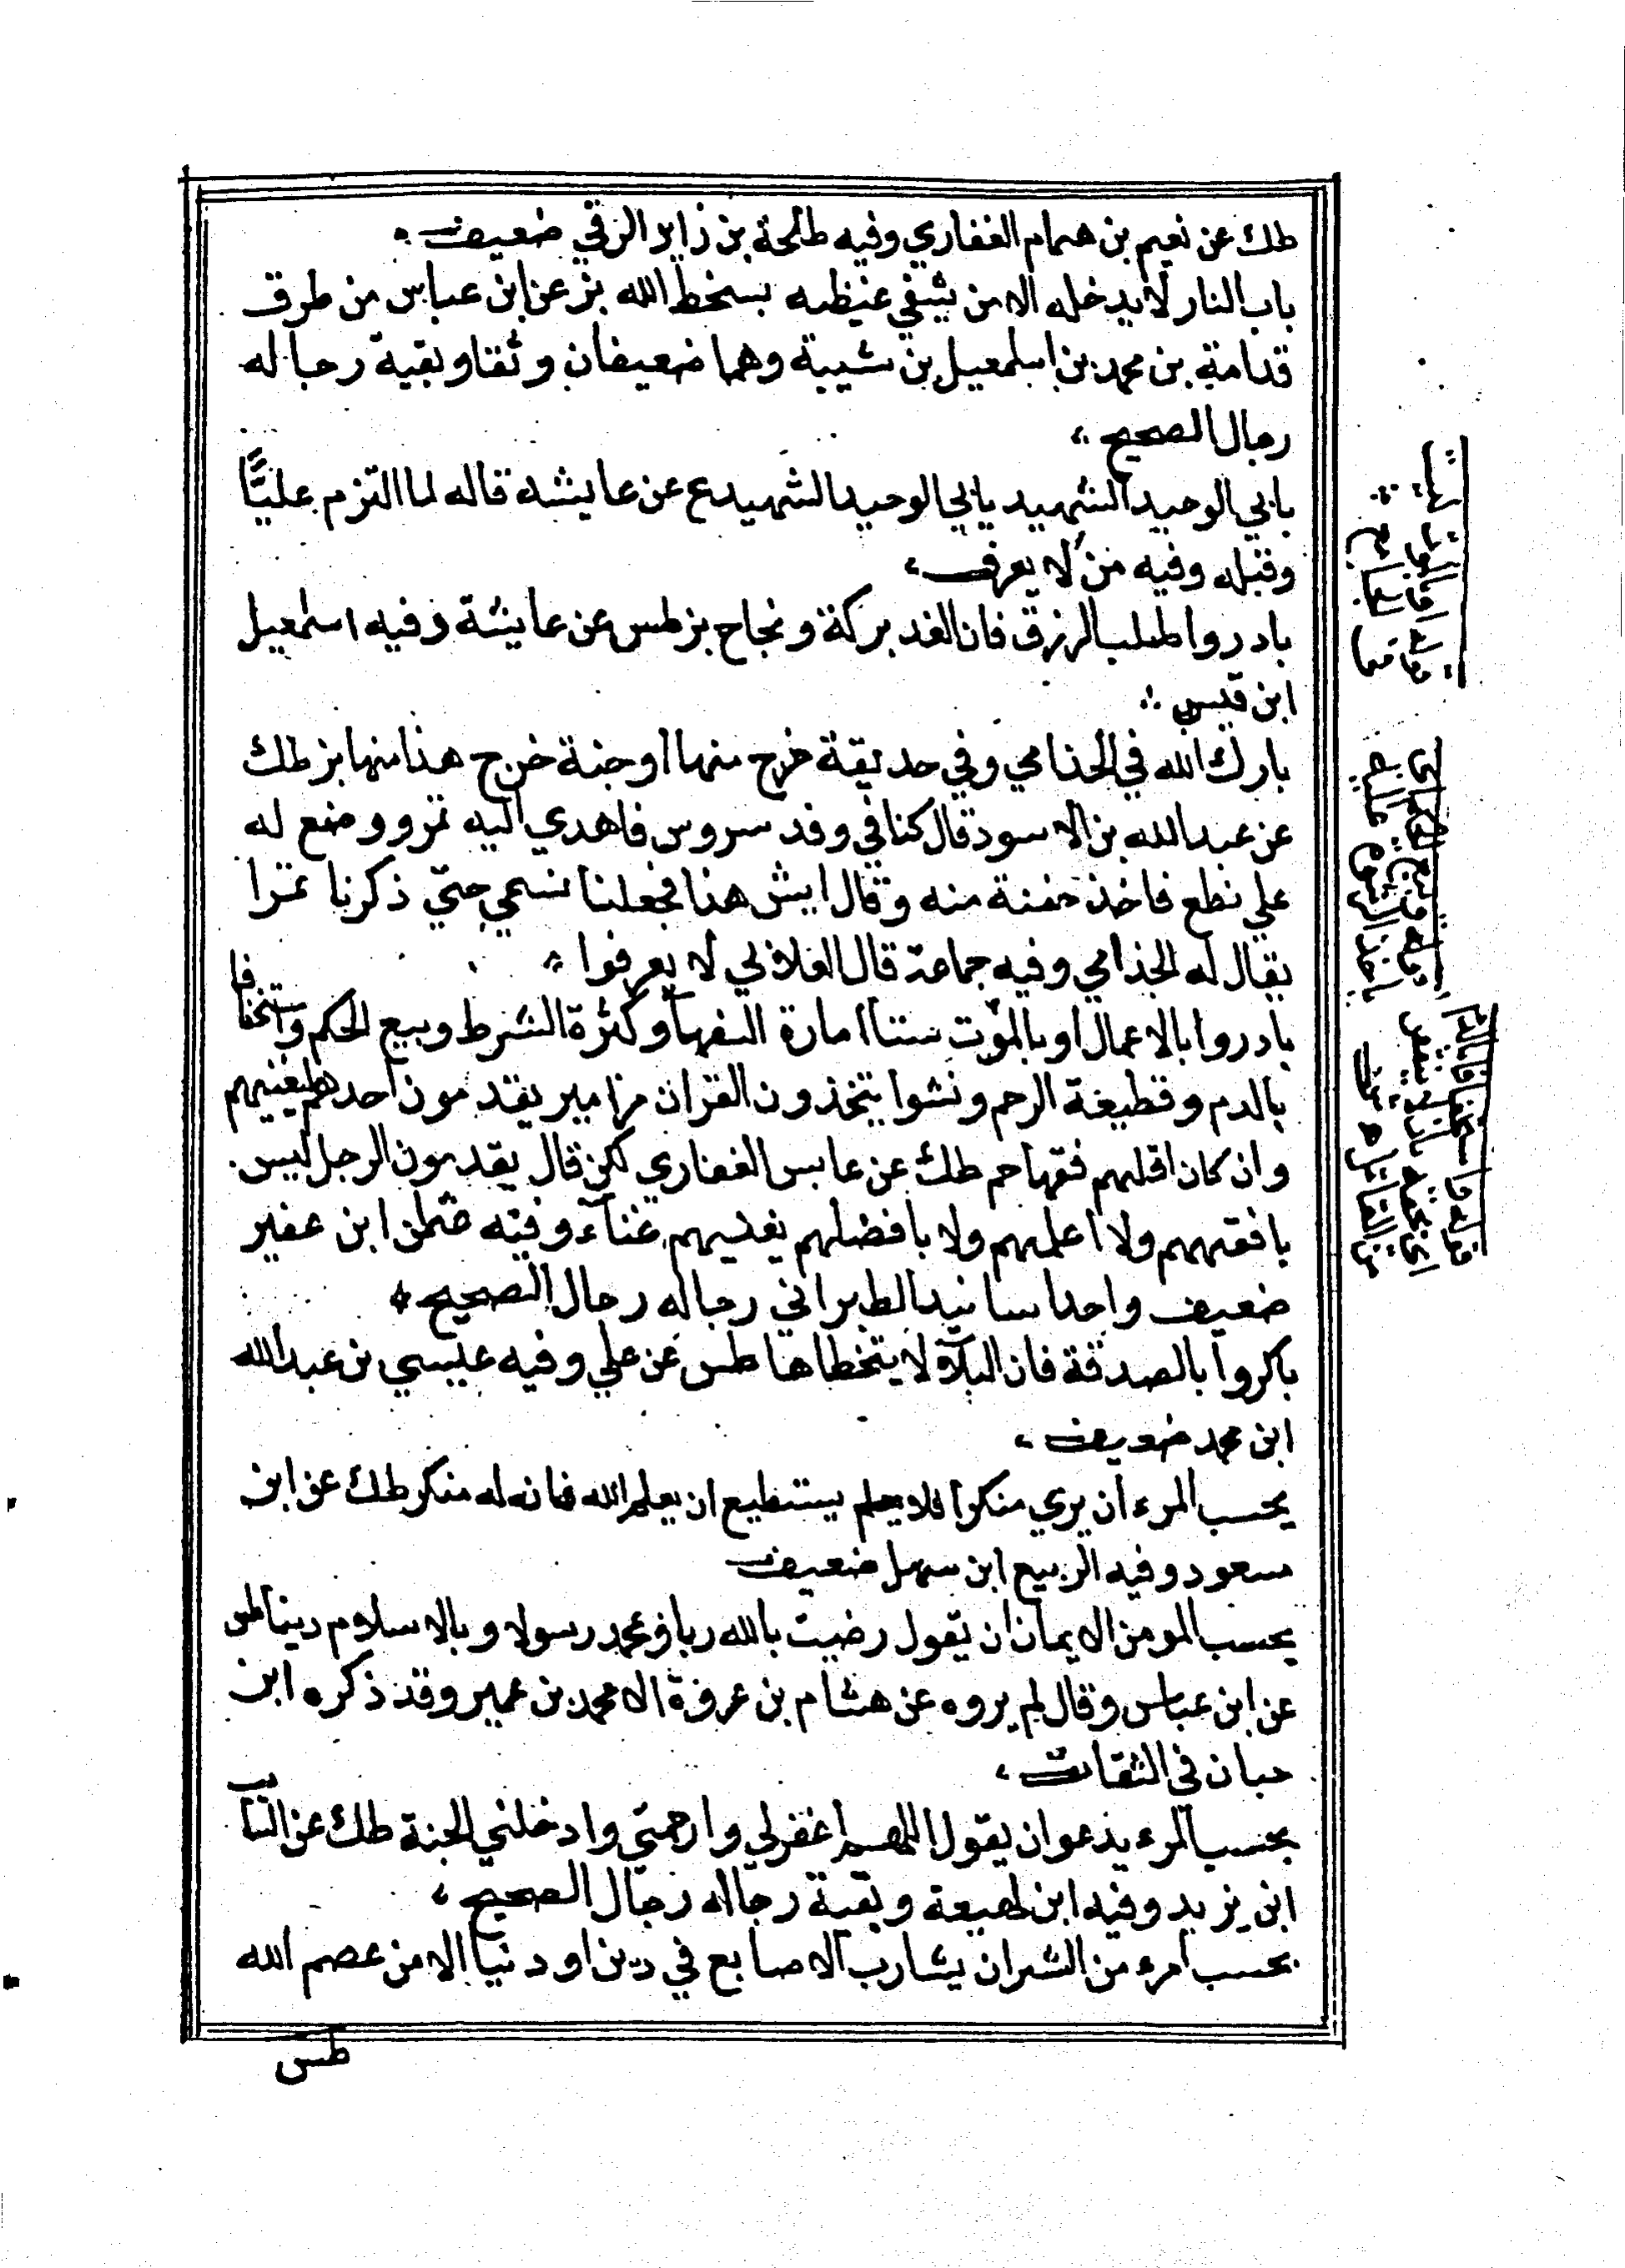 طك عن نعيم بن همام الغفاري وفيه طلحة بن زايد الرقي ضعيف
باب النار لا يدخله الا من يشفي غيظه بسخط الله بز عن ابن عباس من طرق
قدامة بن محمد بن اسمعيل بن شيبة وهما ضعيفان وثقا وبقية رجاله
رجال الصحيح
بابي الوحيد الشهيد يابي الوحيد الشهيد ع عن عايشه قاله لما التزم عليًّا
وقبله وفيه من لا يعرف
بادروا طلب الرزق فان الغد بركة ونجاح بز طس عن عايشة وفيه اسمعيل
ابن قيس
بارك الله في الجذامي وفي حديقة خرج منها اوجنة خرج هذا منها بز طك
عن عبد الله بن الاسود قال كنا في وفد سروس فاهدي اليه تمر ووضع له
علي نطع فاخذ حفنة منه وقال ايش هذا فجعلنا نسمي حتي ذكرنا تمرا
يقال له الجذامي وفيه جماعة قال العلا لي لا يعرفوا
بادروا بالاعمال او بالموت ستا امارة السفها وكثرة الشرط وبيع الحكم واستخفا فا
بالدم وقطيعة الرحم ونشوا يتخذون القران مزامير يقدمون احدهم ليغنيهم
وان كان اقلهم فقها حم طك عن عابس الغفاري لكن قال يقدمون الرجل ليس
بافقههم ولا اعلمهم ولا بافضلهم يغنيهم غناء وفيه عثمان ابن عمير
ضعيف واحد اسانيد الطبراني رجاله رجال الصحيح
باكروا بالصدقة فان البلاء لا يتخطاها طس عن علي وفيه عيسي بن عبد الله
ابن محمد ضعيف
بحسب المرء ان يري منكرا فلا يستطيع ان يعلم الله فانه له منكر طك عن ابن
مسعود وفيه الربيع ابن سهل ضعيف
بحسب المومن الايمان ان يقول رضيت بالله ربا وبمحمد رسولا وبالاسلام دينا طس
عن ابن عباس وقال لم يروه عن هشام بن عروة الا محمد بن عمير وقد ذكره ابن
حبان في الثقات
بحسب المرء يدعو ان يقول اللهم اغفرلي وارحمني وادخلني الجنة طك عن السايب
ابن يزيد وفيه ابن لهيعة وبقية رجاله رجال الصحيح
بحسب امرء من الشر ان يشار بالاصابع في دين او دنيا الا من عصم الله
طس